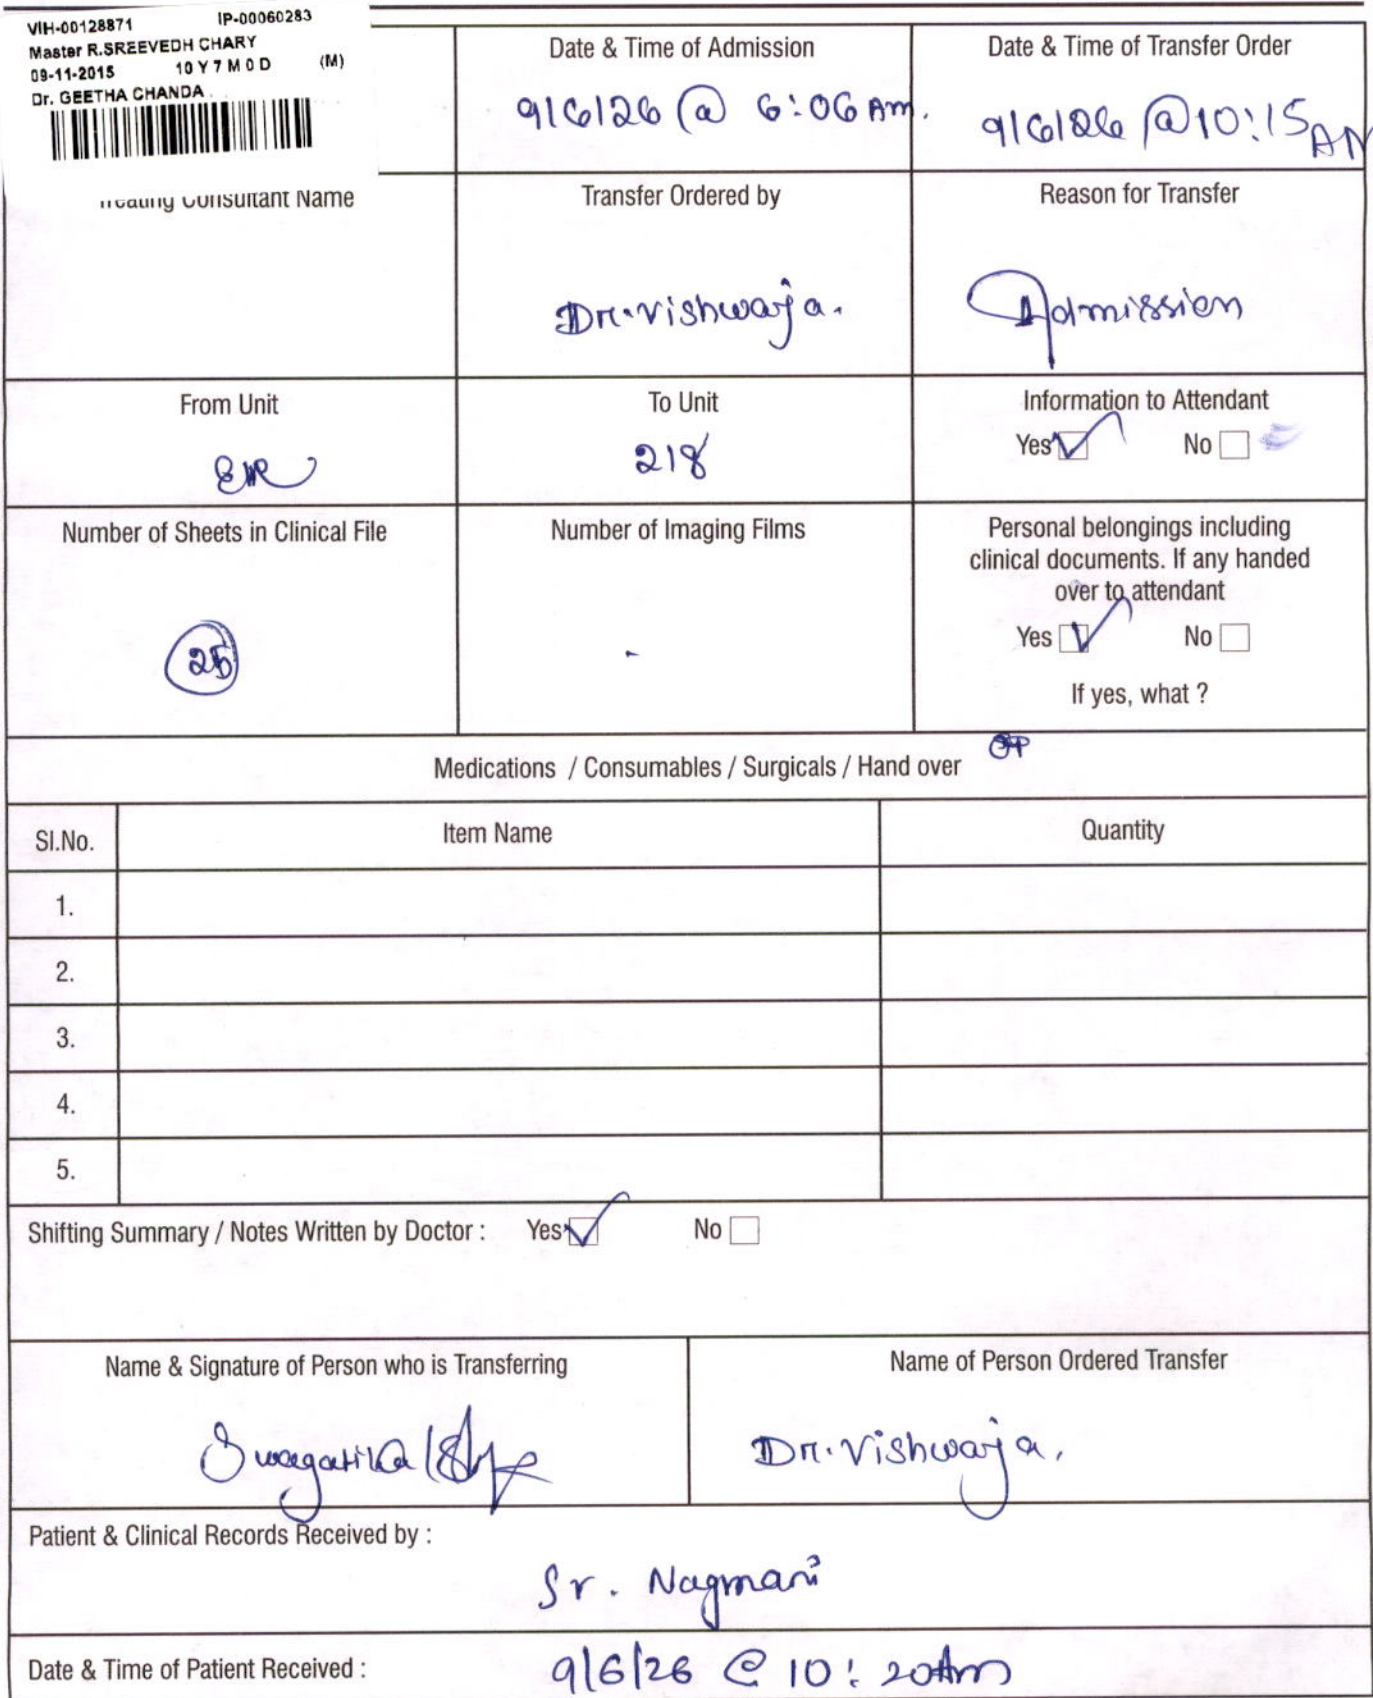 VIH-00128871 IP-00060283
Master R.SREEVEDH CHARY
09-11-2015 10 Y 7 M 0 D (M)
Dr. GEETHA CHANDA
Date & Time of Admission
9/6/26 @ 6:06 Am.
Date & Time of Transfer Order
9/6/26 @ 10:15 AM
Treating Consultant Name
Transfer Ordered by
Dr. Vishwaja.
Reason for Transfer
Admission
From Unit
ER
To Unit
218
Information to Attendant
Yes No
Number of Sheets in Clinical File
25
Number of Imaging Films
-
Personal belongings including
clinical documents. If any handed
over to attendant
Yes No
If yes, what ?
OP
Medications / Consumables / Surgicals / Hand over
Sl.No. Item Name Quantity
1.
2.
3.
4.
5.
Shifting Summary / Notes Written by Doctor : Yes No
Name & Signature of Person who is Transferring
Swagatika
Name of Person Ordered Transfer
Dr. Vishwaja.
Patient & Clinical Records Received by :
Sr. Nagmani
Date & Time of Patient Received :
9/6/26 @ 10:20Am